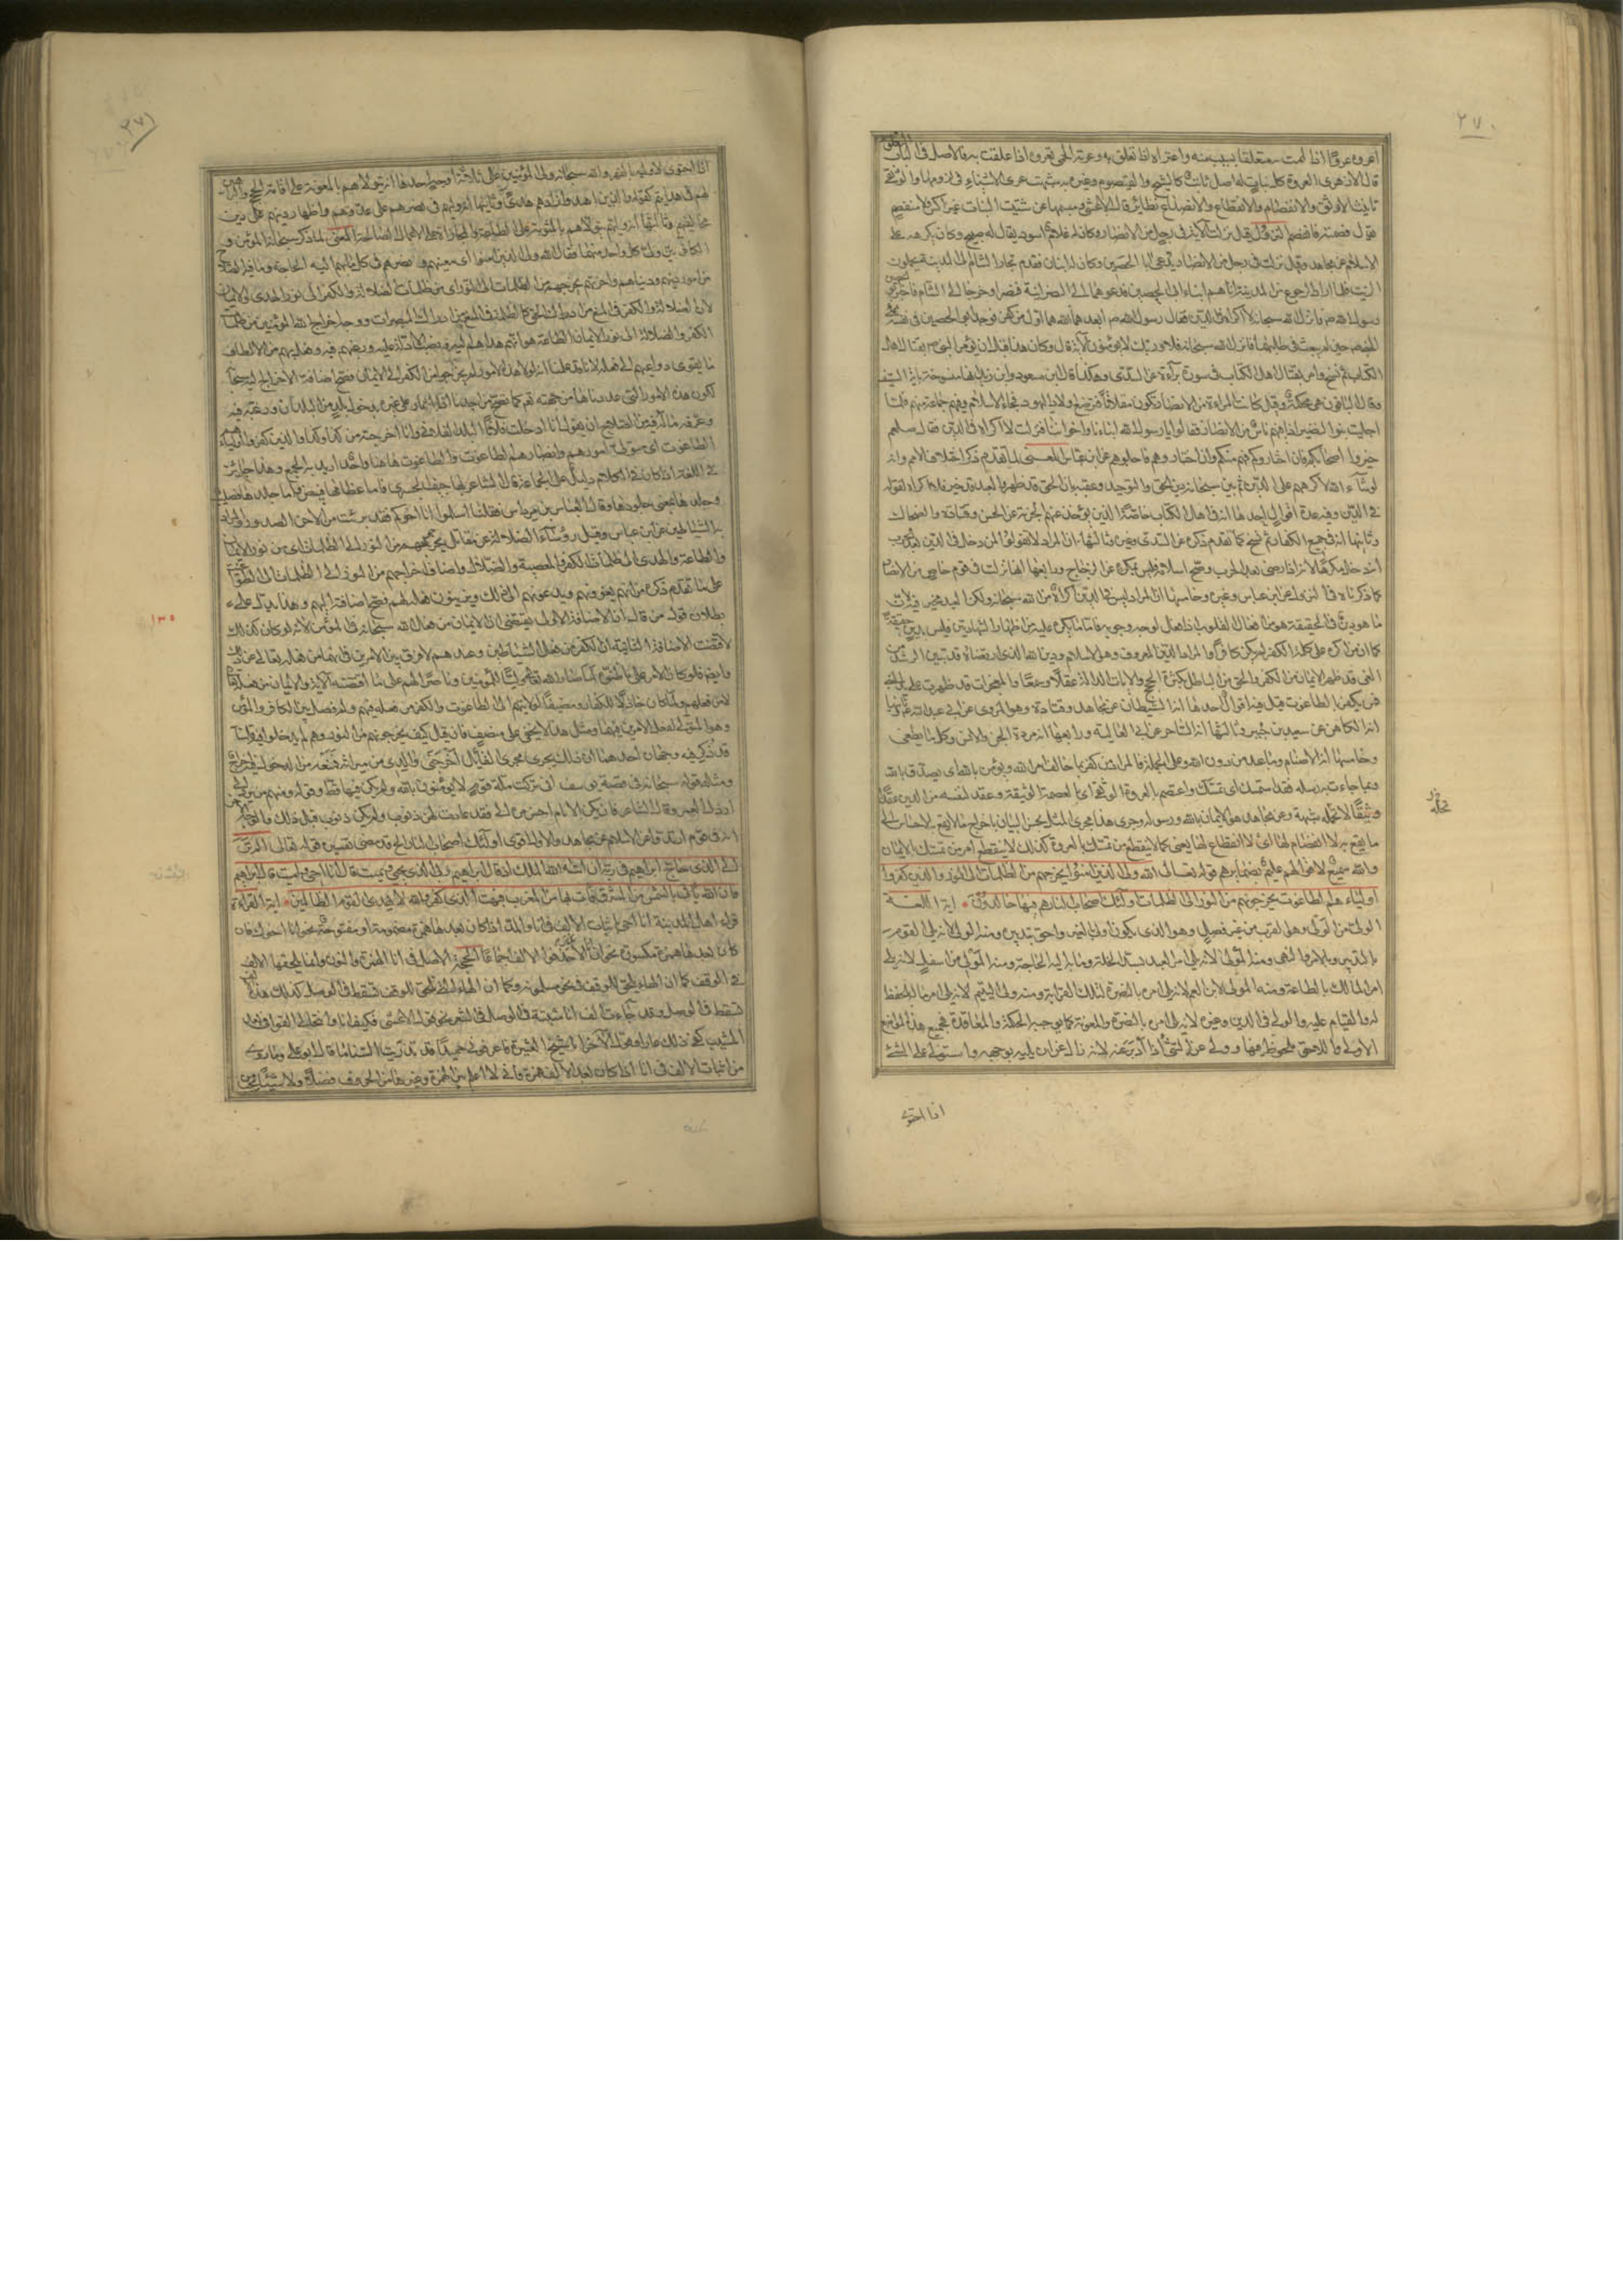 ٢٧٠
اعروه عروا اذا لممت به متعلقا بسبب منه واعتراه اذا تعلق به وعرته الحمى تعروه اذا علقت به فالاصل فى الباب التعلق
قال الازهرى العروة كل نبات له اصل ثابت كالشيح والقيصوم وغيره به شبهت عرى الاشياء فى لزومها والوثقى
تانيث الاوثق والانفصام والانقطاع والانصداع نظائر قال الاعشى ومبسمها عن شتيت النبات غير اكس ولا منفصم
يقول فصمته فانفصم النزول قيل نزلت الآية فى رجل من الانصار وكان له غلام اسود يقال له صبيح وكان يكرهه على
الاسلام عن مجاهد وقيل نزلت فى رجل من الانصار يدعى ابا الحصين وكان له ابنان فقدم تجار الشام الى المدينة يحملون
الزيت فلما ارادوا الرجوع من المدينة اتاهم ابناء ابى الحصين فدعوهما الى النصرانية فتنصرا وخرجا الى الشام فاخبر ابو الحصين
رسول الله ص فانزل الله سبحانه لا اكراه فى الدين فقال رسول الله ص ابعدهما الله هما اول من كفر فوجد ابو الحصين فى نفسه
على النبى ص حين لم يبعث فى طلبهما فانزل الله سبحانه فلا وربك لا يؤمنون الآية قال وكان هذا قبل ان يؤمر النبى ص بقتال اهل
الكتاب ثم نسخ وامر بقتال اهل الكتاب فى سورة براءة عن السدى وهكذا قال ابن مسعود وابن زيد انها منسوخة باية السيف
وقال الباقون هى محكمة وقيل كانت المراة من الانصار تكون مقلاتا فترضع اولاد اليهود فجاء الاسلام وفيهم جماعة منهم فلما
اجليت بنو النضير اذا فيهم ناس من الانصار فقالوا يا رسول الله ابناءنا واخواننا فنزلت لا اكراه فى الدين فقال سلهم
خيروا اصحابكم فان اختاروكم فهم منكم وان اختاروهم فاجلوهم عن ابن عباس المعنى لما تقدم ذكر اختلاف الامم وانه
لو شاء الله لاكرههم على الدين ثم بين سبحانه دين الحق والتوحيد وعقبه بان الحق قد ظهر والعبد قد خير فلا اكراه لقوله
فى الدين وفيه عدة اقوال احدها انه فى اهل الكتاب خاصة الذين يؤخذ عنهم الجزية عن الحسن وقتادة والضحاك
وثانيها انه فى جميع الكفار ثم نسخ كما تقدم ذكره عن السدى وغيره وثالثها ان المراد لا تقولوا لمن دخل فى الدين بعد حرب
انه دخل مكرها لانه اذا رضى بعد الحرب وصح اسلامه فليس بمكره عن الزجاج ورابعها انها نزلت فى قوم خاص من الانصار
كما ذكرناه فى النزول عن ابن عباس وغيره وخامسها ان المراد ليس فى الدين اكراه من الله سبحانه ولكن العبد مخير فيه لان
ما هو دين فى الحقيقة هو من افعال القلوب اذا فعل لوجه وجوبه فاما ما يكره عليه من اظهار الشهادتين فليس بدين حقيقة
كما ان من اكره على كلمة الكفر لم يكن كافرا والمراد الدين المعروف وهو الاسلام ودين الله الذى ارتضاه قد تبين الرشد من
الغى قد ظهر الايمان من الكفر والحق من الباطل بكثرة الحجج والايات الدالة عقلا وسمعا والمعجزات قد ظهرت على يد النبى
فمن يكفر بالطاغوت قيل فيه اقوال احدها انه الشيطان عن مجاهد وقتادة وهو المروى عن ابى عبد الله وثانيها
انه الكاهن عن سعيد بن جبير وثالثها انه الساحر عن ابى العالية ورابعها انه مردة الجن والانس وكل ما يطغى
وخامسها انه الاصنام وما عبد من دون الله وعلى الجملة فالمراد من كفر بما خالف امر الله ويؤمن بالله اى يصدق بالله
وبما جاءت به رسله فقد استمسك اى تمسك واعتصم بالعروة الوثقى اى بالعصمة الوثيقة وعقد لنفسه من الدين عقدا
وثيقا لا تحله شبهة وعن مجاهد هو الايمان بالله ورسوله وجرى هذا مجرى المثل لحسن البيان باخراج ما لا يقع به الاحساس الى
ما يقع به لا انفصام لها اى لا انقطاع لها يعنى كما لا ينقطع من تمسك بالعروة كذلك لا ينقطع امر من تمسك بالايمان
والله سميع لاقوالهم عليم بضمايرهم قوله تعالى الله ولى الذين امنوا يخرجهم من الظلمات الى النور والذين كفروا
اولياؤهم الطاغوت يخرجونهم من النور الى الظلمات اولئك اصحاب النار هم فيها خالدون اية اللغة
الولى من الولى وهو القرب من غير فصل وهو الذى يكون اولى بالغير واحق بتدبيره ومنه الوالى لانه يلى القوم
بالتدبير وبالامر والنهى ومنه المولى لانه يلى امر العبد بسد الخلة وما به اليه الحاجة ومنه المولى من اسفل لانه يلى
امر المالك بالطاعة ومنه المولى لابن العم لانه يلى امره بالنصرة لتلك القرابة ومنه ولى اليتيم لانه يلى امر ماله بالحفظ
له والقيام عليه والولى فى الدين وغيره لانه يلى امره بالنصرة والمعونة كما يوجبه الحكمة والمعاقدة فجميع هذه المواضع
الاولى والاحق ملحوظ فيها وولى عن الشئ اذا ادبر عنه لانه زال عن ان يليه بوجهه واستولى على الشئ
اذا احتوى
٢٧١
اذا احتوى لانه وليه بالقهر والله سبحانه ولى المؤمنين على ثلاثة اوجه احدها انه يتولاهم بالمعونة على اقامة الحجة والبرهان
لهم فى هدايتهم كقوله والذين اهتدوا زادهم هدى وثانيها انه وليهم فى نصرهم على عدوهم واظهار دينهم على دين
مخالفيهم وثالثها انه وليهم يتولاهم بالمثوبة على الطاعة والمجازاة على الاعمال الصالحة المعنى لما ذكر سبحانه المؤمن و
الكافر بين ولى كل واحد منهما فقال الله ولى الذين امنوا اى معينهم ونصيرهم فى كل ما بهم اليه الحاجة وما فيه الصلاح
من امور دينهم ودنياهم واخرتهم يخرجهم من الظلمات الى النور اى من ظلمات الضلالة والكفر الى نور الهدى والايمان
لان الضلالة والكفر فى المنع من ادراك الحق كالظلمة فى المنع من ادراك المبصرات ووجه اخراج الله المؤمنين من ظلمات
الكفر والضلالة الى نور الايمان والطاعة هو انه هداهم اليه ونصب الادلة عليه ورغبهم فيه وفعل بهم من الالطاف
ما يقوى دواعيهم الى فعله لانا قد علمنا انه لولا هذه الامور لم يخرجوا من الكفر الى الايمان فصح اضافة الاخراج اليه سبحانه
لكون هذه الامور التى عددناها من جهته كما يصح من احدنا اذا اشار على غيره بدخول بلد من البلدان ورغبه فيه
وعرفه ما له فيه من الصلاح ان يقول انا ادخلت فلانا البلد الفلانى وانا اخرجته من كذا وكذا والذين كفروا اولياؤهم
الطاغوت اى متولى امورهم وانصارهم الطاغوت والطاغوت هاهنا واحد اريد به الجميع وهذا جايز
فى اللغة اذا كان فى الكلام دليل على الجماعة قال الشاعر بها جيف الحسرى فاما عظامها فبيض واما جلدها فصليب
وجلدها بمعنى جلودها وقال العباس بن مرداس فقلنا اسلموا انا اخوكم فقد برئت من الاحن الصدور والمراد
به الشياطين عن ابن عباس وقيل رؤساء الضلالة عن مقاتل يخرجونهم من النور الى الظلمات اى من نور الايمان
والطاعة والهدى الى ظلمات الكفر والمعصية والضلالة واضاف اخراجهم من النور الى الظلمات الى الطاغوت
على ما تقدم ذكره من انهم يغوونهم ويدعونهم الى ذلك ويزينون فعله لهم فصح اضافته اليهم وهذا يدل على
بطلان قول من قال ان الاضافة الاولى يقتضى ان الايمان من فعل الله سبحانه فى المؤمن لانه لو كان كذلك
لاقتضت الاضافة الثانية ان الكفر من فعل الشيطان وعندهم لا فرق بين الامرين فى انهما من فعله تعالى عن ذلك
وايضا فلو كان الامر على ما ظنوا لما صار الله تعالى وليا للمؤمنين وناصرا لهم على ما اقتضته الآية والايمان من فعله لا
من فعلهم ولما كان خاذلا للكفار ومضيفا لولايتهم الى الطاغوت والكفر من فعله فيهم ولم فصل بين الكافر والمؤمن
وهو المتولى لفعل الامرين فيهما ومثل هذا لا يخفى على منصف فان قيل كيف يخرجونهم من النور وهم لم يدخلوا فيه قلنا
قد ذكر فيه وجهان احدهما ان ذلك يجرى مجرى قول القائل اخرجنى والدى من ميراثه فمنعه من الدخول فيه اخراج
ومثله قوله سبحانه فى قصة يوسف انى تركت ملة قوم لا يؤمنون بالله ولم يكن فيها قط وقوله ومنهم من يرد الى
ارذل العمر وقال الشاعر فان تكن الايام احسن مرة الى فقد عادت لهن ذنوب ولم يكن ذنوب قبل ذلك والوجه الاخر
انه فى قوم ارتدوا عن الاسلام عن مجاهد والاول اقوى اولئك اصحاب النار الخ قد مضى تفسيره قوله تعالى الم تر
الى الذى حاج ابراهيم فى ربه ان اتيه الله الملك اذ قال ابراهيم ربى الذى يحيى ويميت قال انا احيى واميت قال ابراهيم
فان الله ياتى بالشمس من المشرق فات بها من المغرب فبهت الذى كفر والله لا يهدى القوم الظالمين اية القراءة
قرأ اهل المدينة انا احيى باثبات الالف فى انا والمد اذا كان بعدها همزة مضمومة او مفتوحة نحو انا اخوك فان
كان بعدها همزة مكسورة نحو ان انا الا حذفوا الالف اجماعا الحجة الاصل فى انا الهمزة والنون وانما يلحقها الالف
فى الوقف كما ان الهاء يلحق للوقف فى نحو مسلمونه وكما ان الهاء التى تلحق للوقف تسقط فى الوصل كذلك هذه الالف
تسقط فى الوصل وقد جاءت الف انا مثبتة فى الوصل فى الشعر نحو قول الاعشى فكيف انا وانتحالى القوافى بعد
المشيب كفى ذاك عارا وقول الآخر انا شيخ العشيرة فاعرفونى حميدا قد تذريت السناما قال ابو على وما روى
من اثبات الالف فى انا اذا كان بعد الالف همزة فانى لا اعلم بين الهمزة وغيرها من الحروف فصلا ولا شيئا يجب
١٣٥